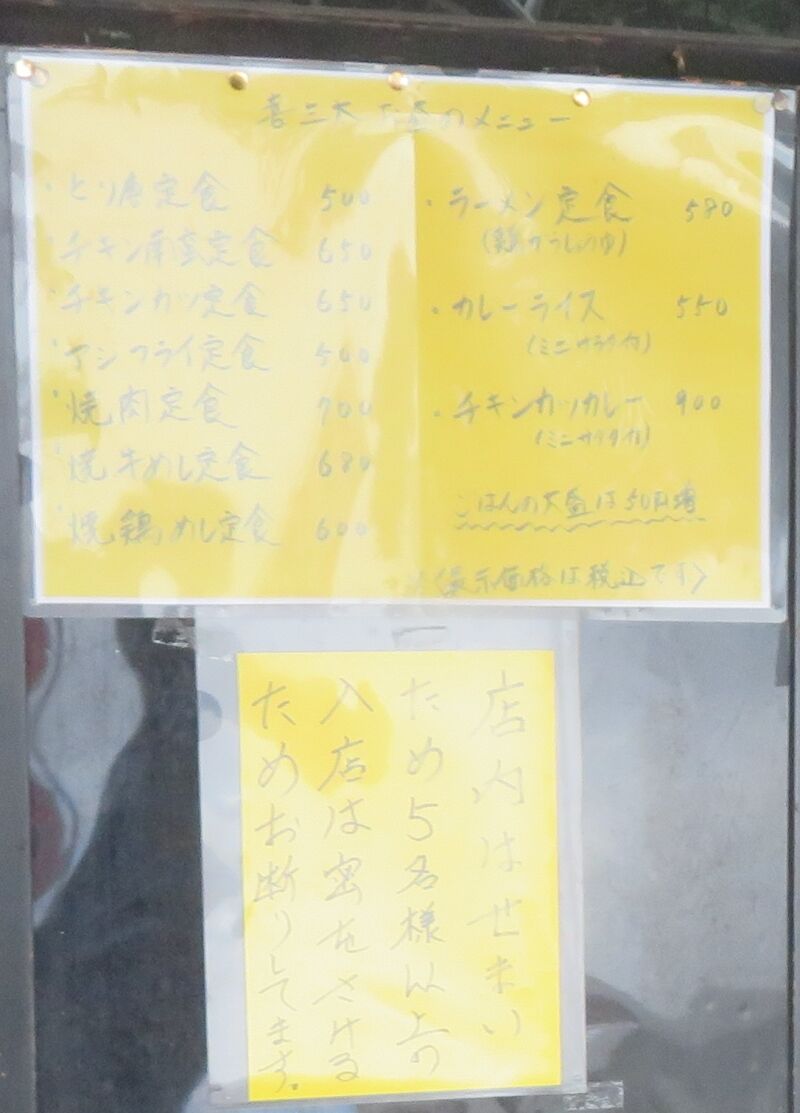 喜三太 お昼のメニュー
・とり唐定食 500
・チキン南蛮定食 650
・チキンカツ定食 650
・アジフライ定食 500
・焼肉定食 700
・焼牛めし定食 680
・焼鶏めし定食 600
・ラーメン定食 580
(鶏がらしょうゆ)
・カレーライス 550
(ミニサラダ付)
・チキンカツカレー 900
(ミニサラダ付)
ごはんの大盛は50円増
※〈表示価格は税込です〉
店内はせまい
ため5名様以上の
入店は密をさける
ためお断りしてます。